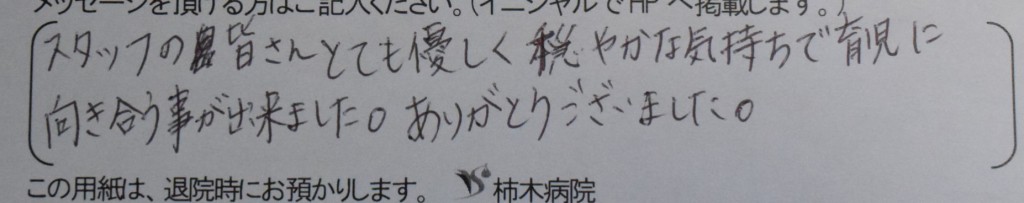 メッセージを頂ける方はご記入ください。(イニシャルでHPへ掲載します。)
スタッフの皆さんとても優しく穏やかな気持ちで育児に
向き合う事が出来ました。ありがとうございました。
この用紙は、退院時にお預かりします。 柿木病院